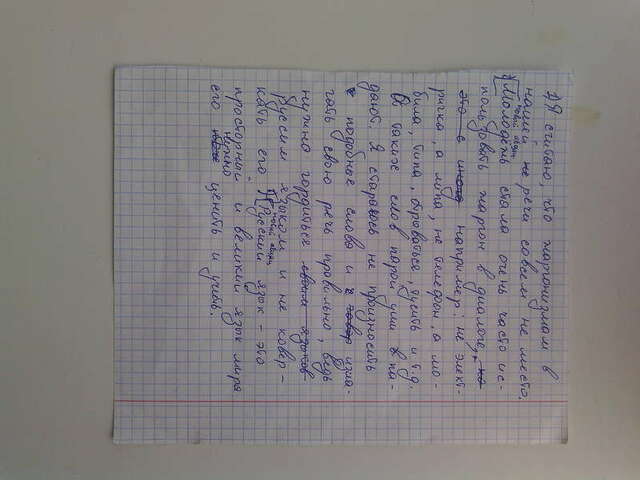 1) Я считаю, что жаргонизмам в
нашей не речи совсем не место.
новый абзац
[Молодежь стала очень часто ис-
пользовать жаргон в диалоге, но
это с иногд например: не элект-
ричка, а липа, не телефон, а мо-
била, типа, отрываться, тусить и т.д.
От таких слов парой уши в па-
дают. Я стараюсь не произносить
подобные слова и говор изла-
гать свою речь правильно, ведь
нужно гордиться своим языков
Руссим языком и не ковер-
новый абзац
кать его [Русский язык – это
просторный и великий язык мира
нужно
его ценить и учить.